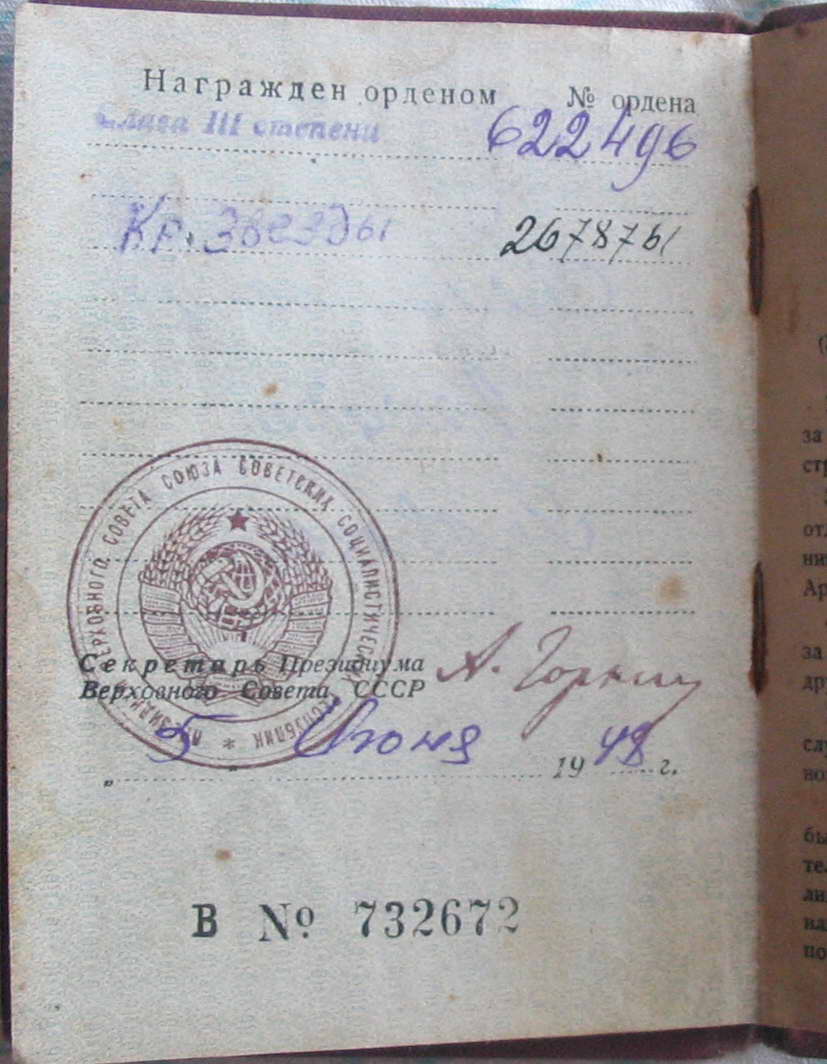 Награжден орденом № ордена
Слава III степени 622496
Кр. Звезды 2678761
ПРЕЗИДИУМ ВЕРХОВНОГО СОВЕТА СОЮЗА СОВЕТСКИХ СОЦИАЛИСТИЧЕСКИХ РЕСПУБЛИК *
Секретарь Президиума
Верховного Совета СССР
А. Горкин
„5“ Июня 1948 г.
В № 732672
(
за
стр
от
ни
Ар
за
др
слу
но
бы
те
ли
на
по